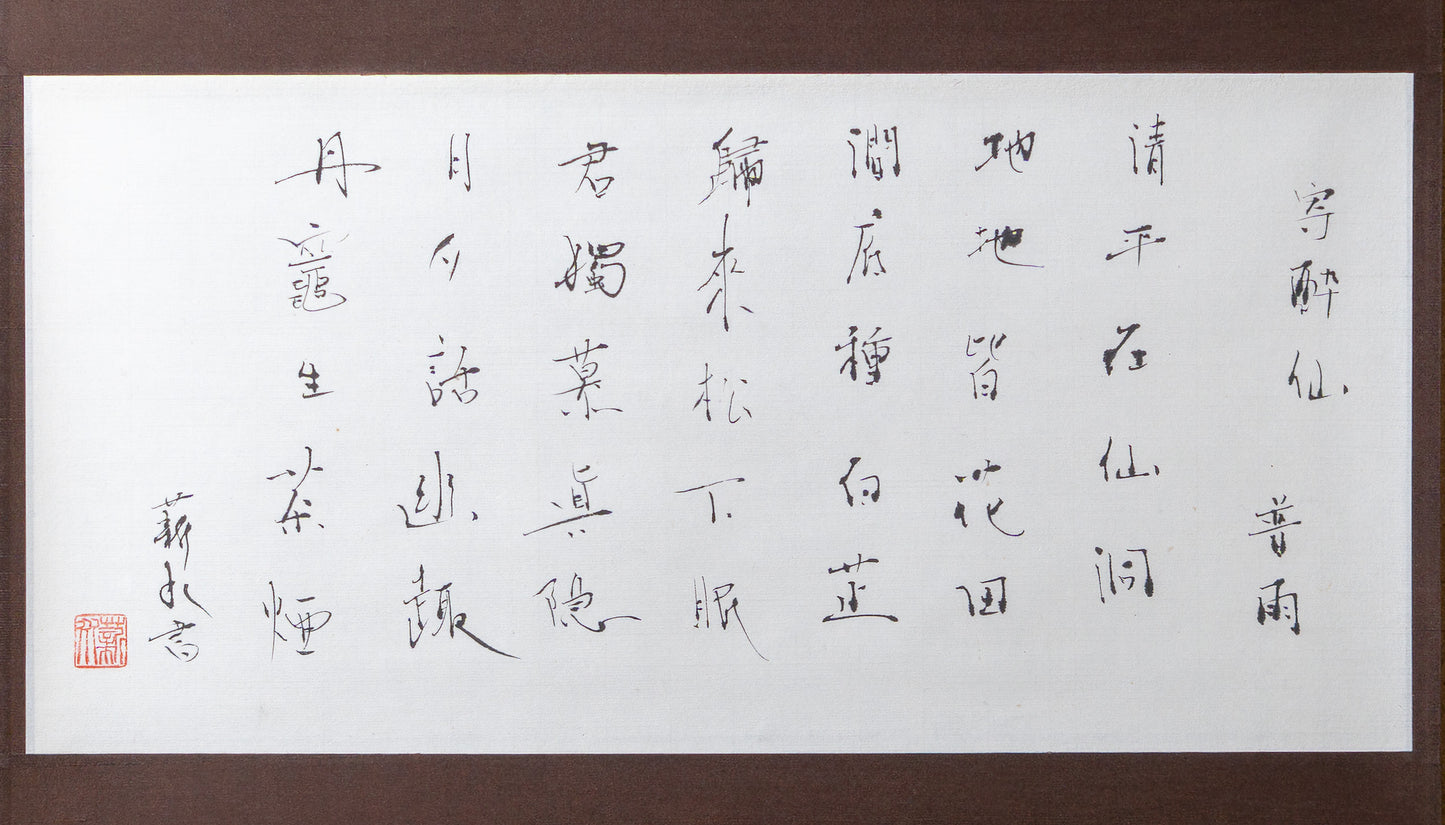 寄酔仙
普雨
清平在仙洞
地地皆花田
澗底種白芷
歸來松下眠
君獨慕眞隠
月夕話幽趣
丹竈生茶煙
書